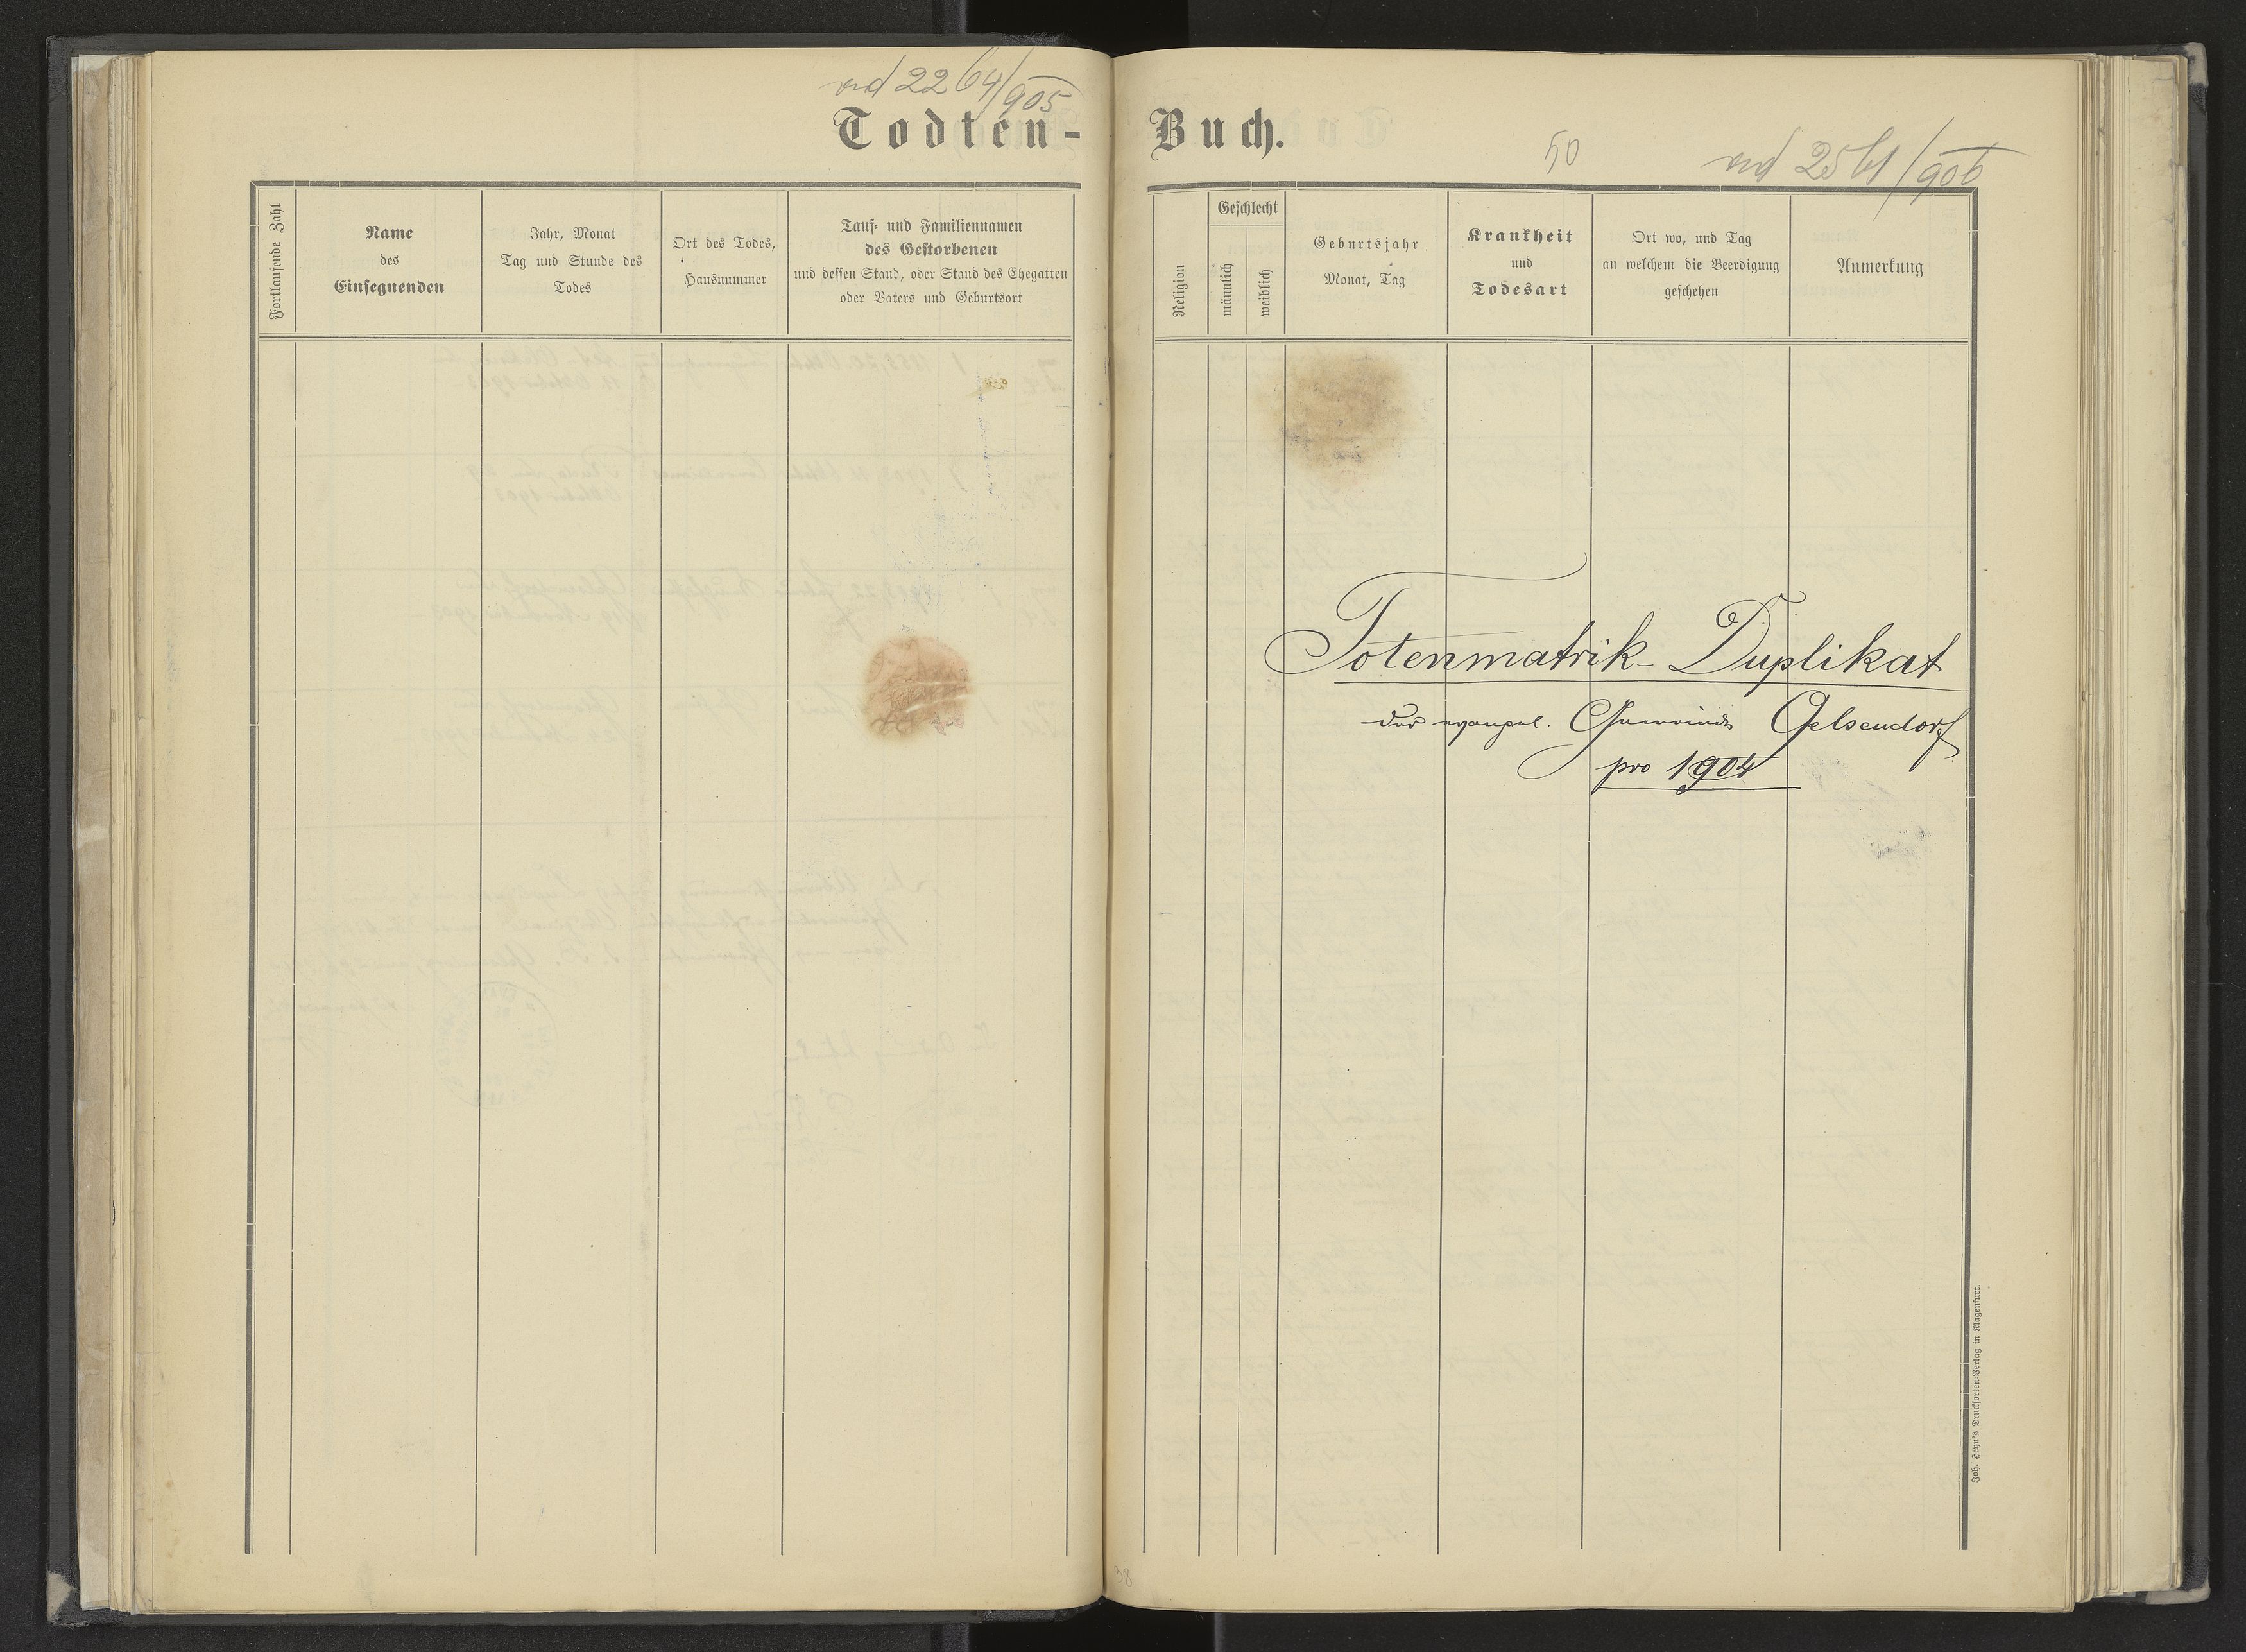 ad 2264/905
Todten-
Fortlaufende Zahl
Name
des
Einsegnenden
Jahr, Monat
Tag und Stunde des
Todes
Ort des Todes,
Hausnummer
Tauf- und Familiennamen
des Gestorbenen
und dessen Stand, oder Stand des Ehegatten
oder Vaters und Geburtsort
Buch.
50
ad 2561/906
Religion
Geschlecht
männlich
weiblich
Geburtsjahr
Monat, Tag
Krankheit
und
Todesart
Ort wo, und Tag
an welchem die Beerdigung
geschehen
Anmerkung
Totenmatrik-Duplikat
der evangel. Gemeinde Gelsendorf
pro 1904
Joh. Heyn's Drucksorten-Verlag in Klagenfurt.
38